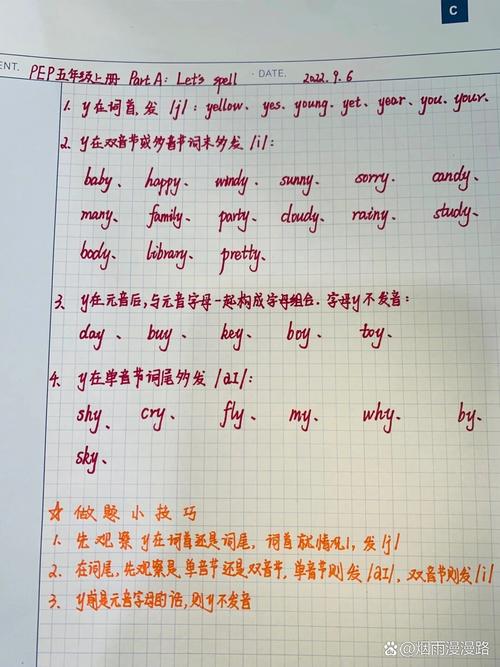 C
ENT. PEP五年级上册 Part A: Let's spell · DATE. 2022.9.6
1. y在词首,发/j/: yellow、yes、young、yet、year、you、your、
2. y在双音节或多音节词末多发/i/:
baby、 happy、 windy、 sunny、 sorry、 candy、
many、 family、 party、 cloudy、 rainy、 study、
body、 library、 pretty、
3. y在元音后,与元音字母一起构成字母组合.字母y不发音:
day、 buy、 key、 boy、 toy、
4. y在单音节词尾多发/aɪ/:
shy、 cry、 fly、 my、 why、 by、
sky、
☆ 做题小技巧
1. 先观察y在词首还是词尾,词首就情况1,发/j/
2. 在词尾,先观察是单音节还是双音节,单音节则发/aɪ/,双音节则发/i/
3. y前是元音字母的话,则y不发音
@烟雨漫漫路